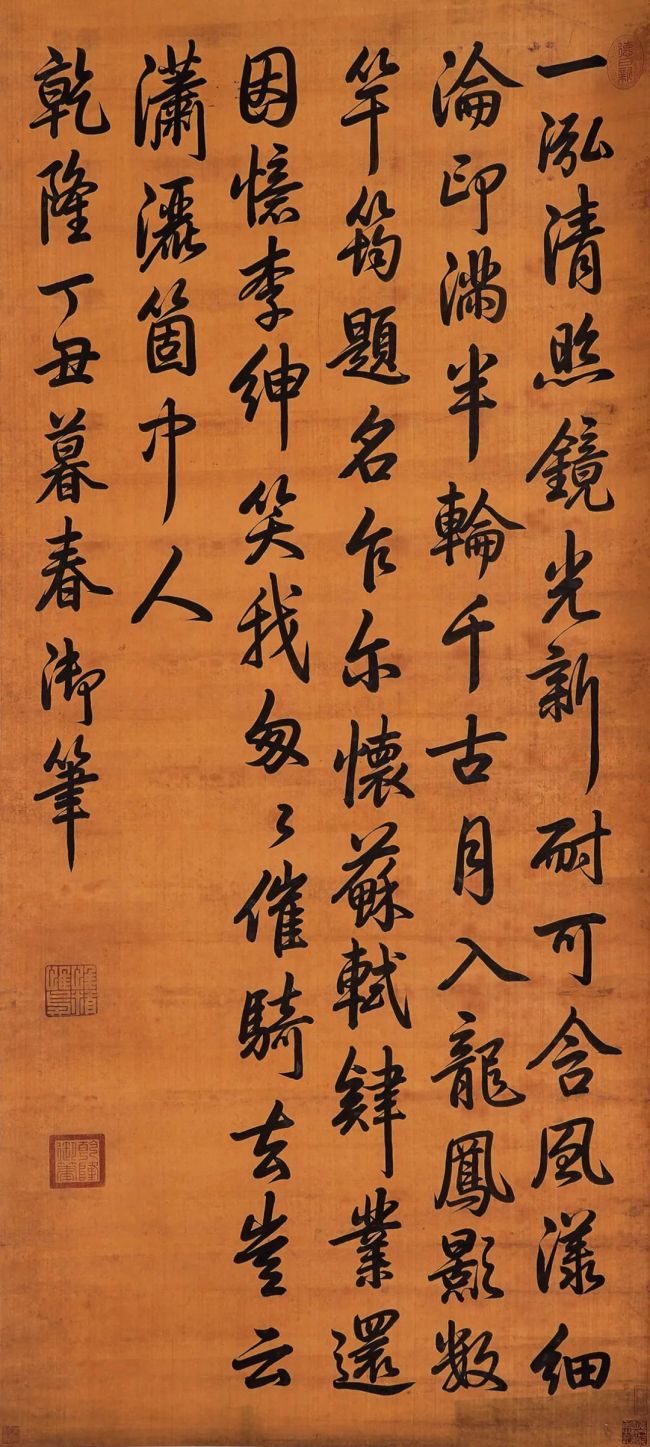 德日新
一泓清照鏡光新耐可含風漾細
淪印滿半輪千古月入龍鳳影數
竿筠題名乍尔懷蘇軾肄業還
因憶李紳笑我匆〻催騎去豈云
瀟灑箇中人
乾隆丁丑暮春御筆
惟精惟一
乾隆御筆